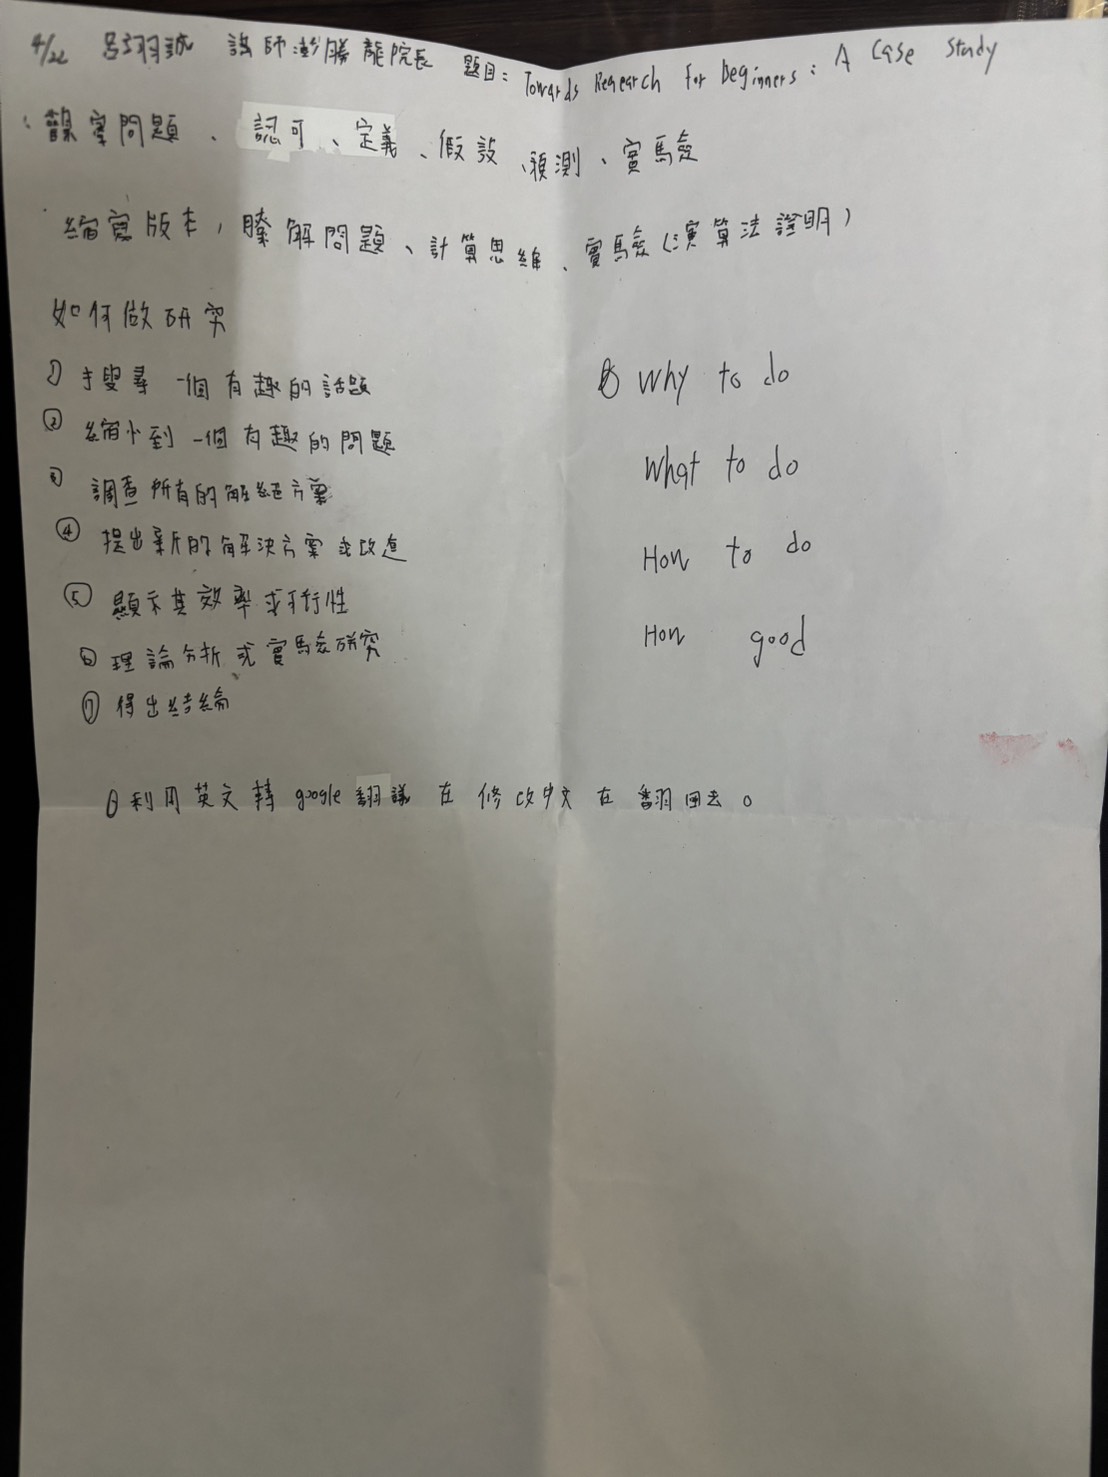 4/22 呂羽誠 講師:彭勝龍院長 題目: Towards Research for beginners: A Case Study
觀察問題、認可、定義、假設、預測、實驗
縮寫版本,瞭解問題、計算思維、實驗(演算法證明)
如何做研究
① 搜尋一個有趣的話題
② 縮小到一個有趣的問題
③ 調查所有的解決方案
④ 提出新的解決方案或改進
⑤ 顯示其效率或可行性
⑥ 理論分析或實驗研究
⑦ 得出結論
Why to do
What to do
How to do
How good
利用英文轉google翻議在修改中文在翻回去。